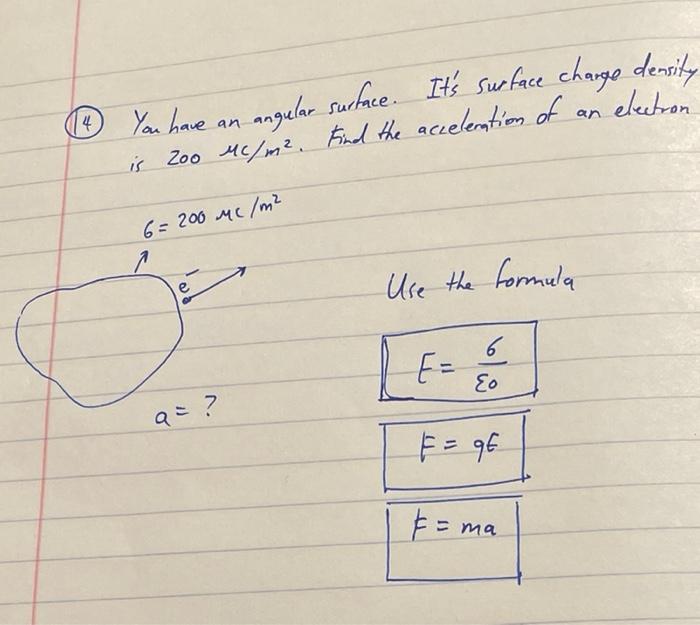 14 You have an angular surface. It's surface charge density
is 200 μc/m². Find the acceleration of an electron
6 = 200 μc/m²
e⁻
Use the formula
E = 6/ε0
a = ?
F = qE
F = ma